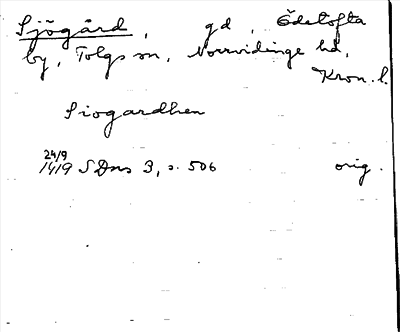 Sjögård, gd, Ödetofta
by, Tolgs sn, Norrvidinge hd,
Kron. l.
Siogardhen
24/9
1419 SDns 3, s. 506 orig.